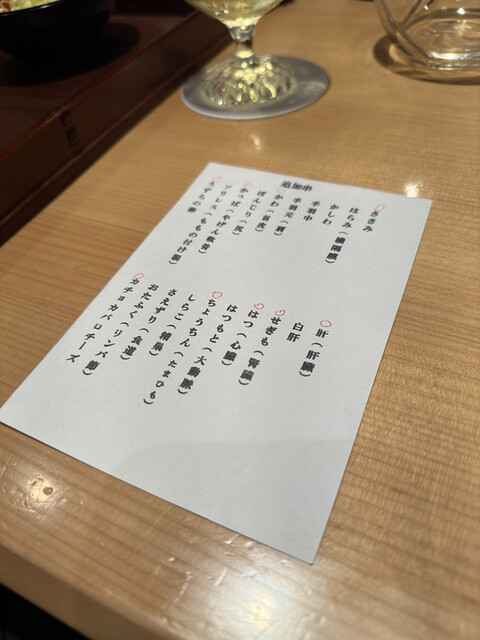 追加串
ささみ
はらみ(横隔膜)
かしわ
手羽中
手羽元(肩)
かわ(首皮)
ぼんじり(尻)
かっぱ(やげん軟骨)
ソリレス(ももの付け根)
うずらの卵
肝(肝臓)
白肝
せぎも(腎臓)
はつ(心臓)
はつもと(大動脈)
ちょうちん(たまひも)
しらこ(精巣)
さえずり(食道)
おたふく(リンパ腺)
カチョカバロチーズ